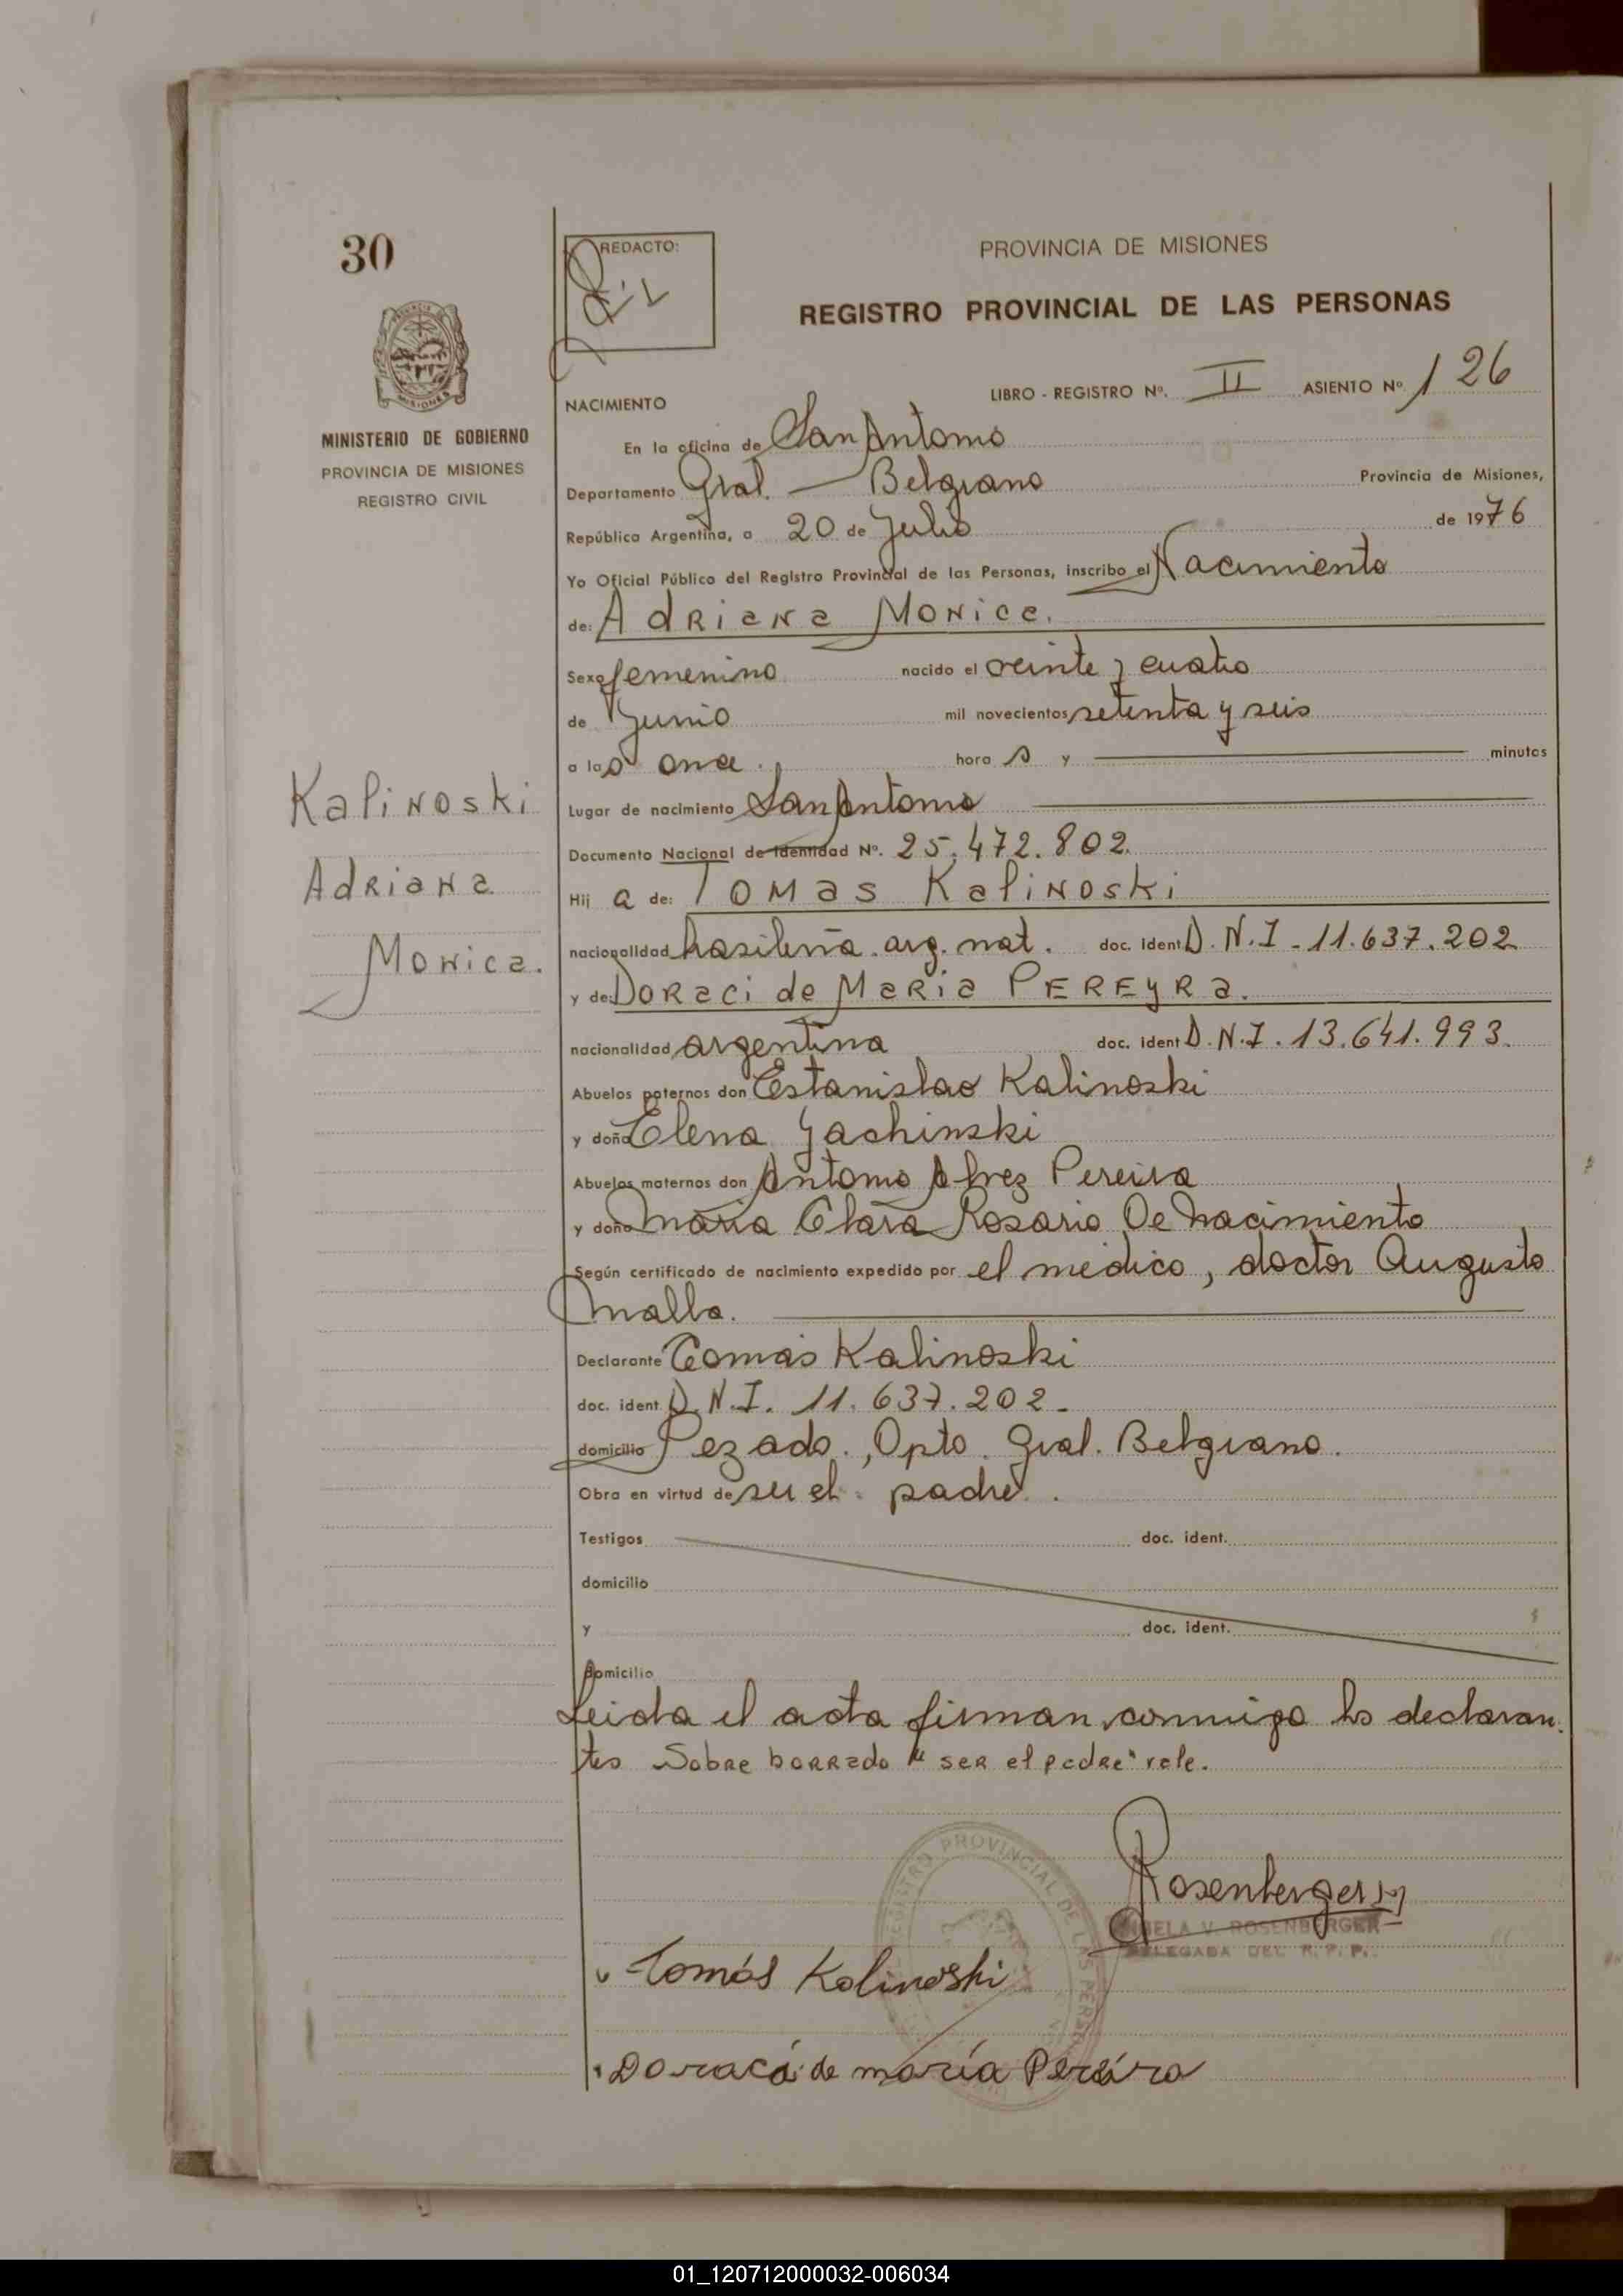 30
REDACTO:
PROVINCIA DE MISIONES
REGISTRO PROVINCIAL DE LAS PERSONAS
PROVINCIA DE MISIONES
MINISTERIO DE GOBIERNO
PROVINCIA DE MISIONES
REGISTRO CIVIL
LIBRO - REGISTRO Nº. II ASIENTO Nº. 126
NACIMIENTO
En la oficina de San Antonio
Departamento Gral. — Belgrano Provincia de Misiones,
República Argentina, a 20 de Julio de 1976
Yo Oficial Público del Registro Provincial de las Personas, inscribo el Nacimiento
de: Adriana Monica.
Sexo femenino nacido el veinte y cuatro
de Junio mil novecientos setenta y seis
a las once. hora s y minutos
Kalinoski
Adriana
Monica.
Lugar de nacimiento San Antonio
Documento Nacional de Identidad Nº. 25.472.802.
Hij a de: Tomas Kalinoski
nacionalidad brasileña. arg. nat. doc. ident D.N.I - 11.637.202
y de: Doraci de Maria Pereyra.
nacionalidad argentina doc. ident D.N.I. 13.641.993.
Abuelos paternos don Estanislao Kalinoski
y doña Elena Yachinski
Abuelos maternos don Antonio Alvez Pereira
y doña Maria Clara Rosario De Nacimiento
Según certificado de nacimiento expedido por el médico, doctor Augusto
Malla.
Declarante Tomás Kalinoski
doc. ident. D.N.I. 11.637.202-
domicilio Pezado., Dpto. Gral. Belgrano.
Obra en virtud de su el padre.
Testigos doc. ident.
domicilio
y doc. ident.
domicilio
Leida el acta firman conmigo los declaran
tes Sobre borrado "ser el padre" vale.
REGISTRO PROVINCIAL DE LAS PERSONAS
Rosenberger
V. ROSENBERGER
DELEGADA DEL R.P.P.
Tomás Kalinoski
Doraci de maría Pereira
01_120712000032-006034